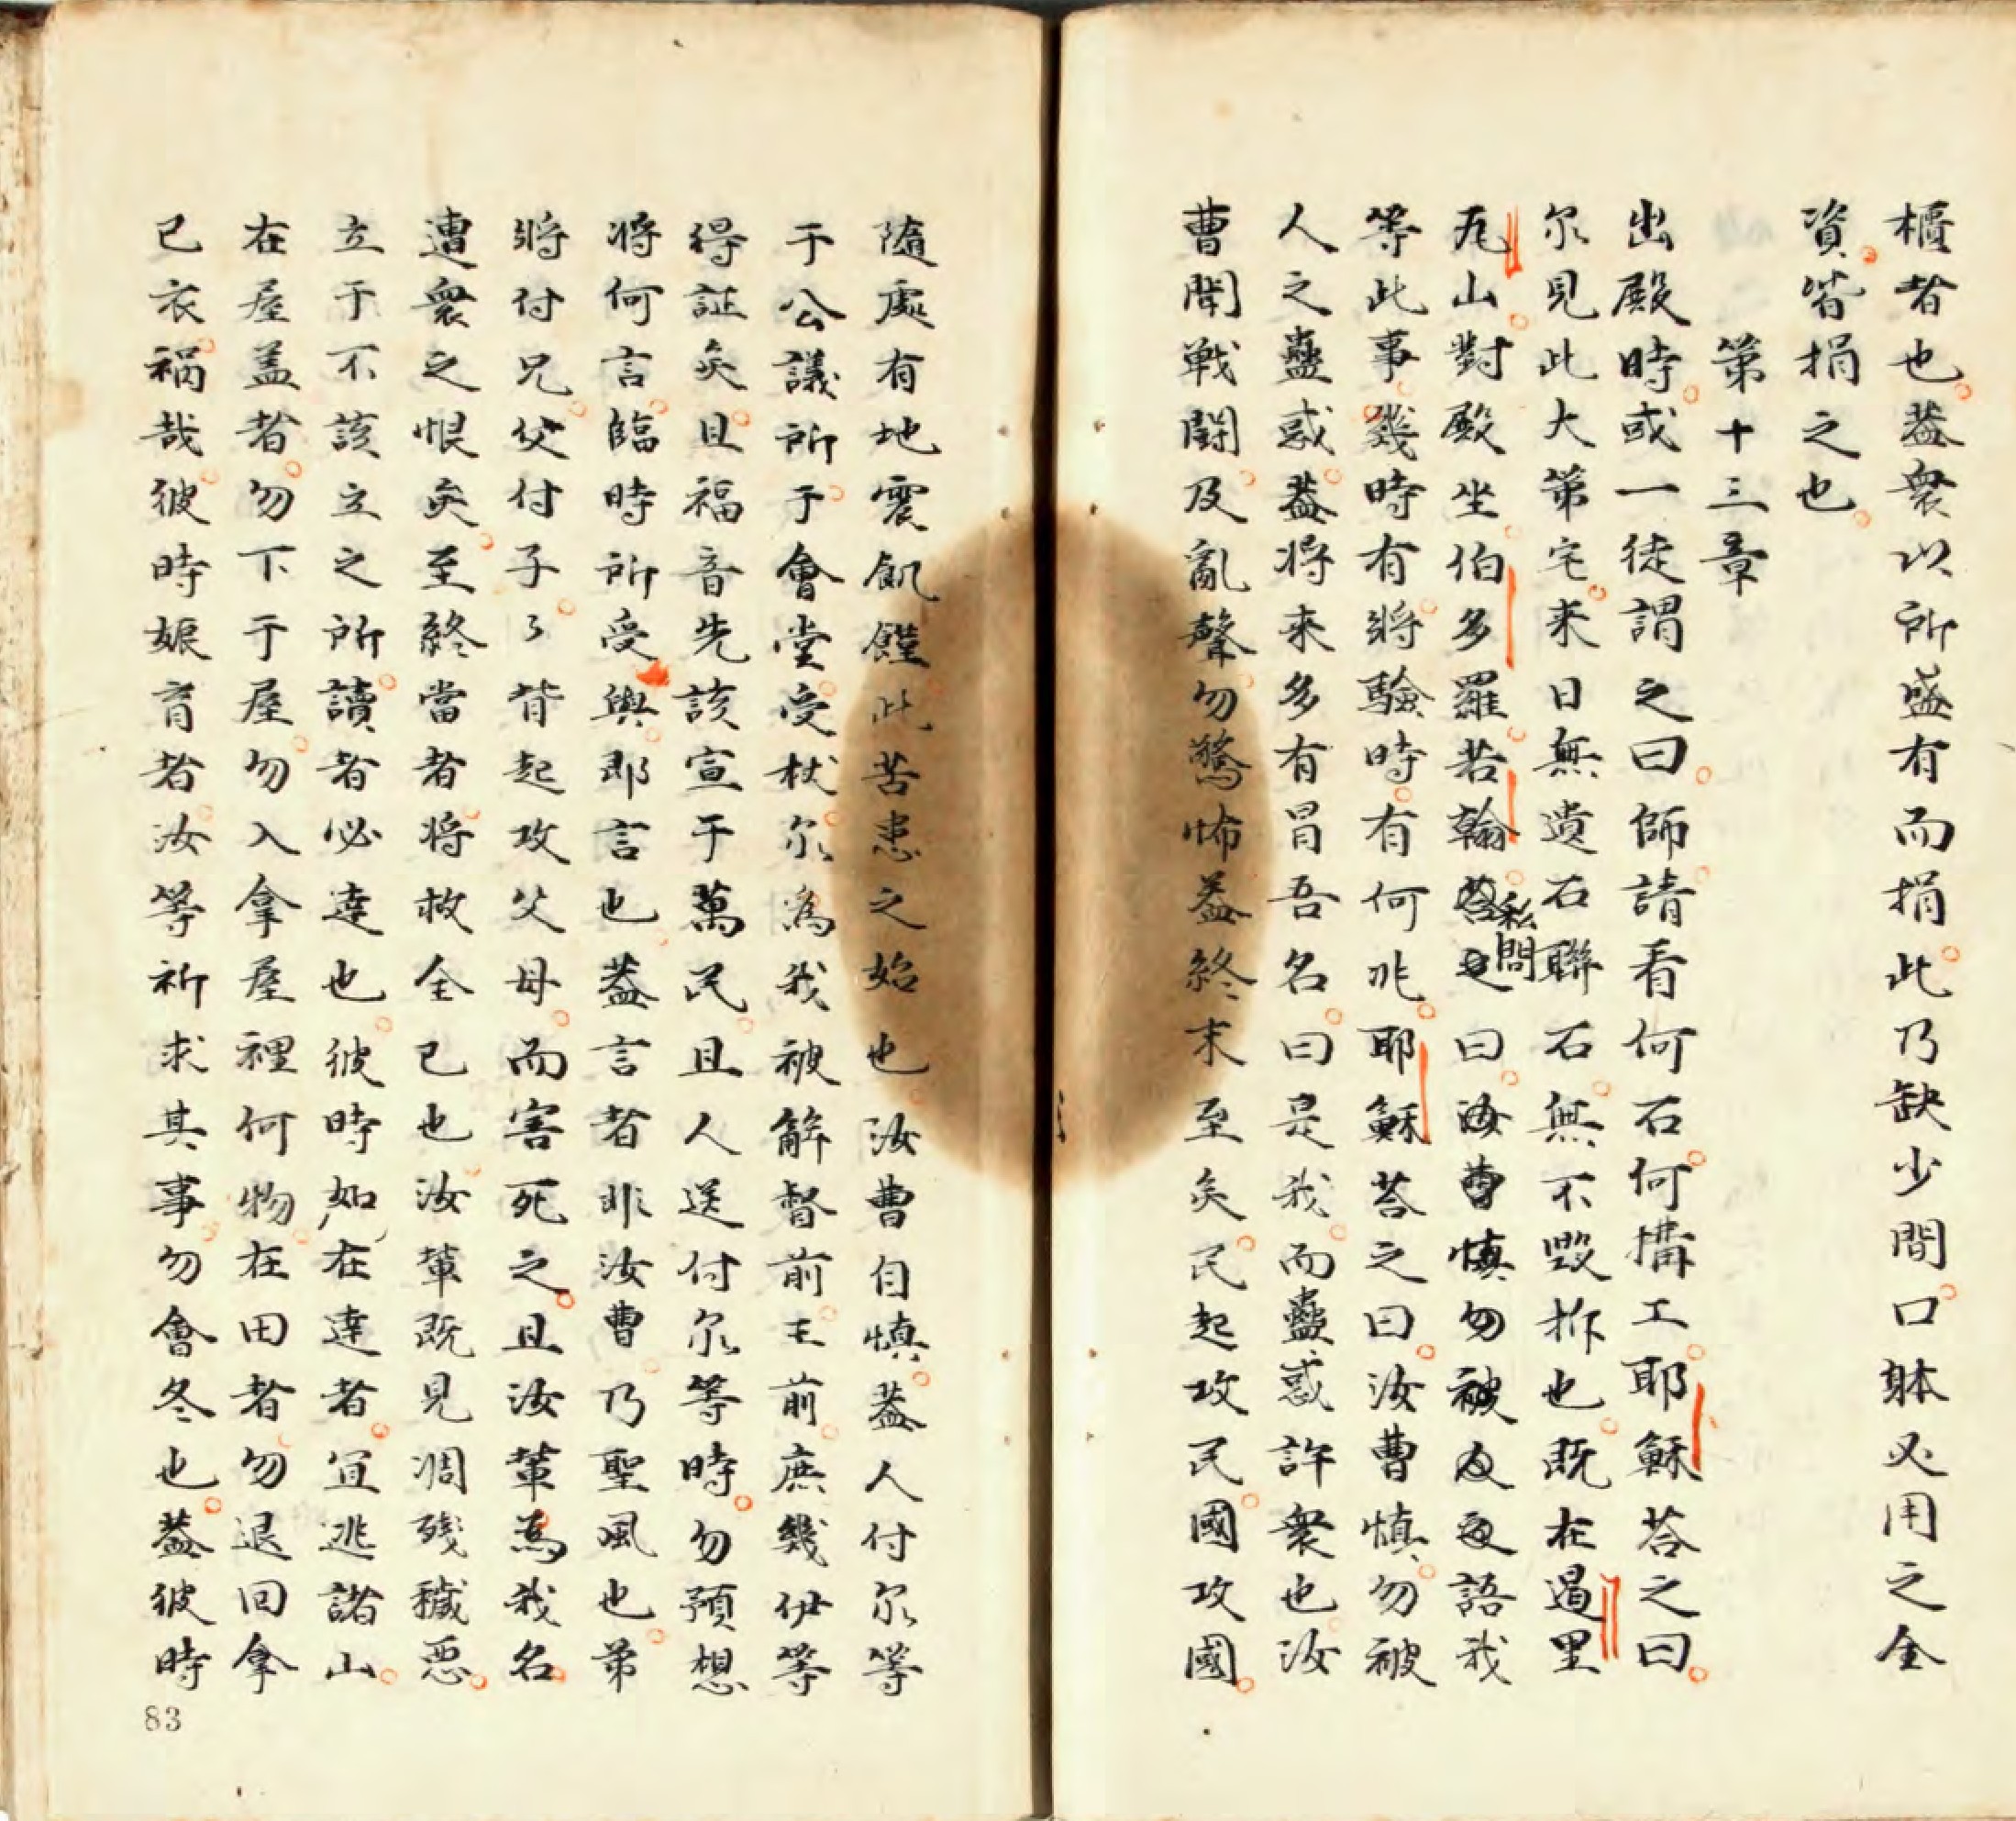 櫃者也蓋衆以所盛有而捐此乃缺少間口躰必用之全
資皆捐之也
第十三章
出殿時或一徒謂之曰師請看何石何搆工耶穌荅之曰
尔見此大第宅来日無遺石聯石無不毀拆也既在遏里
𠃵山對殿坐伯多羅若翰私問曰汝曹慎勿被語我
等此事幾時有將驗時有何兆耶穌荅之曰汝曹慎勿被
人之蠱惑蓋将来多有冒吾名曰是我而蠱惑許衆也汝
曹聞戰鬪及亂聲勿驚怖蓋終末至矣民起攻民國攻國
隨處有地震飢饉此苦患之始也汝曹自慎蓋人付尔等
于公議所于會堂受杖尔為我被解督前王前庶幾伊等
得証矣且福音先該宣于萬民且人送付尔等時勿預想
将何言臨時所受與即言也蓋言者非汝曹乃聖風也弟
將付兄父付子子背起攻父母而害死之且汝輩為我名
遭衆之恨矣至終當者将救全已也汝輩既見凋殘穢惡
立于不該立之所讀者必達也彼時如在達者宜逃諸山
在屋盖者勿下于屋勿入拿屋裡何物在田者勿退回拿
已衣禍哉彼時娠育者汝等祈求其事勿會冬也蓋彼時
83